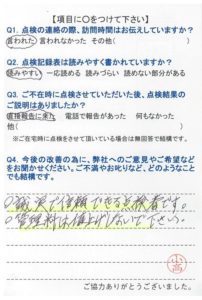 【項目に〇をつけて下さい】
Q1. 点検の連絡の際、訪問時間はお伝えしていますか?
言われた 言われなかった その他( )
Q2. 点検記録表は読みやすく書かれていますか?
読みやすい 一応読める 読みづらい 読めない部分がある
Q3. ご不在時に点検させていただいた後、点検結果の
ご説明はありましたか?
直接報告に来た 電話で報告があった 何もなかった
他( )
※ご在宅時に点検をさせて頂いている場合は無回答で結構です。
Q4. 今後の改善の為に、弊社へのご意見やご希望などを
お聞かせください。ご不満やお叱りなど、どのようなこと
でも結構です。
○誠実で信頼できる点検者です。
○管理料は値上げしないで下さい。
小高
ご協力ありがとうございました。